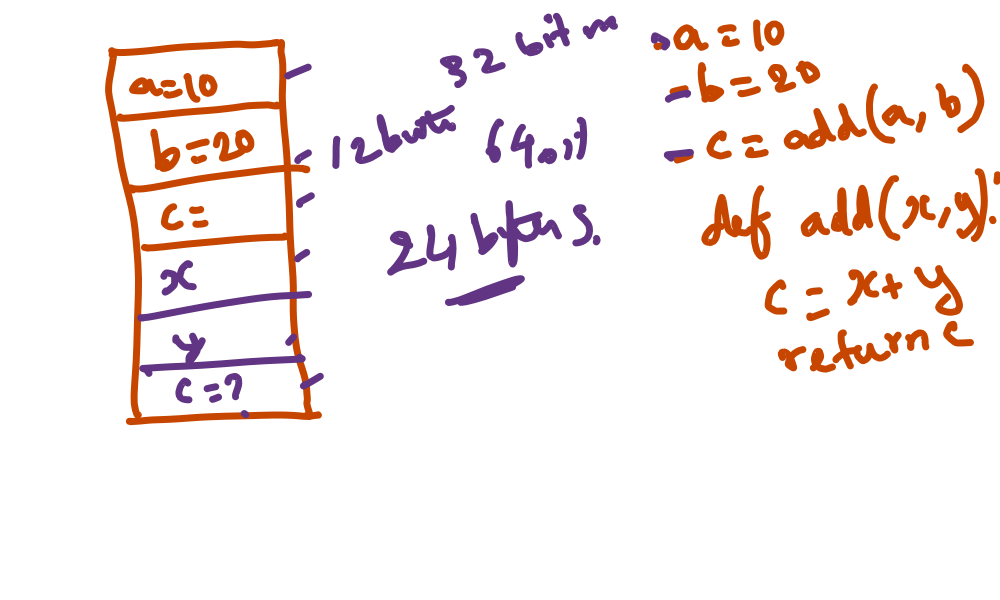 a=10
b=20
c=
x
y
c=?
32 bit m
12 bytes
24 bytes.
a=10
b=20
c=add(a,b)
def add(x,y):
c=x+y
return c